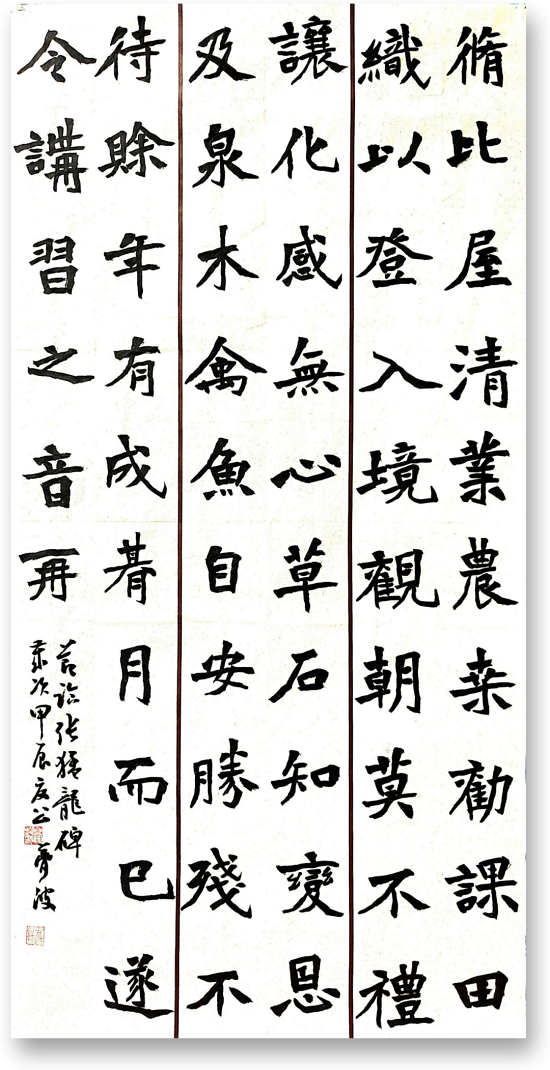 脩比屋清業農桒勸課田
織以登入境觀朝莫不禮
讓化感無心草石知變恩
及泉木禽魚自安勝殘不
待賖年有成朞月而已遂
令講習之音再
節臨張猛龍碑
歲次甲辰